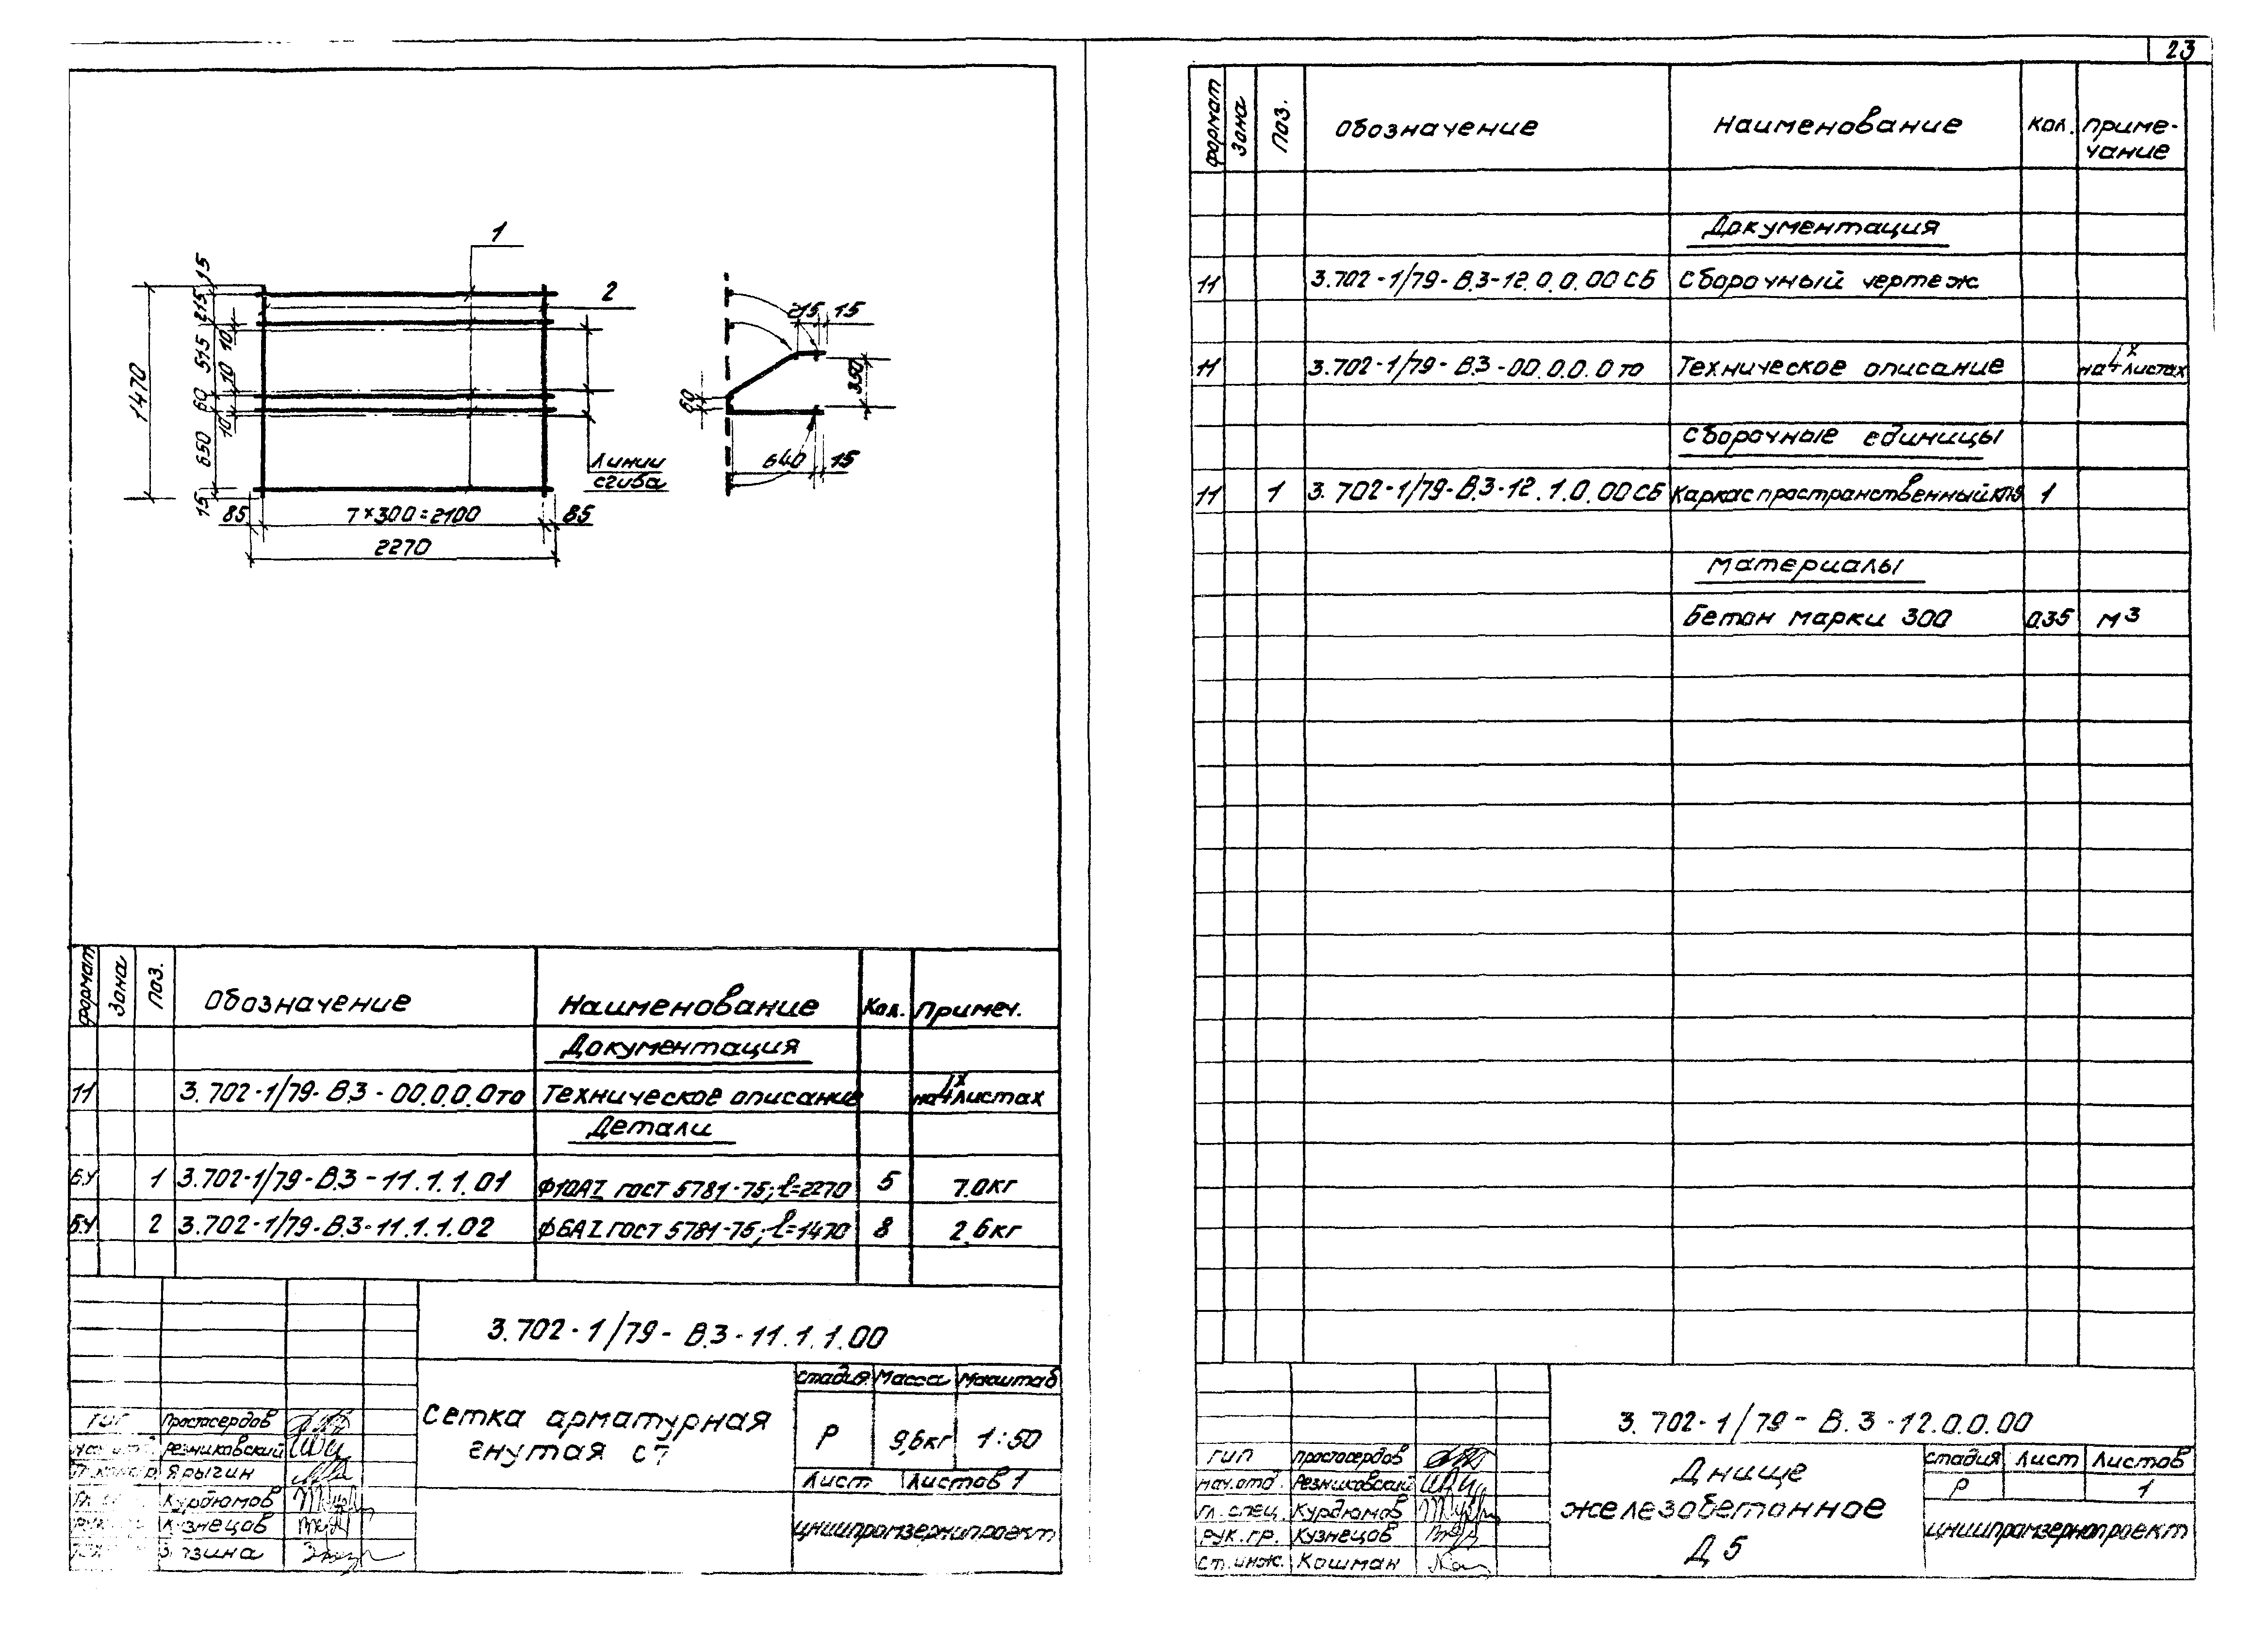 23
1
2
15
215
515
60
650
15
10
10
10
1470
Линии
сгиба
85
7×300=2100
85
2270
215
15
350
60
640
15
формат
Зона
Поз.
Обозначение
Наименование
Кол.
Примеч.
Документация
11
3.702-1/79-В.3-00.0.0.0то
Техническое описание
на 4х листах
Детали
Б.Ч
1
3.702-1/79-В.3-11.1.1.01
Ф10АI ГОСТ 5781-75; l=2270
5
7.0кг
Б.Ч
2
3.702-1/79-В.3-11.1.1.02
Ф6АI ГОСТ 5781-75; l=1470
8
2.6кг
3.702-1/79-В.3-11.1.1.00
Сетка арматурная
гнутая С7
стадия
Масса
Масштаб
Р
9,6кг
1:50
Лист
Листов 1
ЦНИИпромзернопроект
ГИП
Простосердов
нач.отд.
Резниковский
Ярыгин
Курдюмов
Кузнецов
формат
Зона
Поз.
Обозначение
Наименование
Кол.
Приме-
чание
Документация
11
3.702-1/79-В.3-12.0.0.00 СБ
Сборочный чертеж
11
3.702-1/79-В.3-00.0.0.0то
Техническое описание
на 4х листах
Сборочные единицы
11
1
3.702-1/79-В.3-12.1.0.00 СБ
Каркас пространственный
1
Материалы
Бетон марки 300
0.35
м3
3.702-1/79-В.3-12.0.0.00
Днище
железобетонное
Д 5
стадия
Лист
Листов
Р
1
ЦНИИпромзернопроект
ГИП
Простосердов
нач.отд.
Резниковский
гл.спец.
Курдюмов
рук.гр.
Кузнецов
Ст.инж.
Кошман